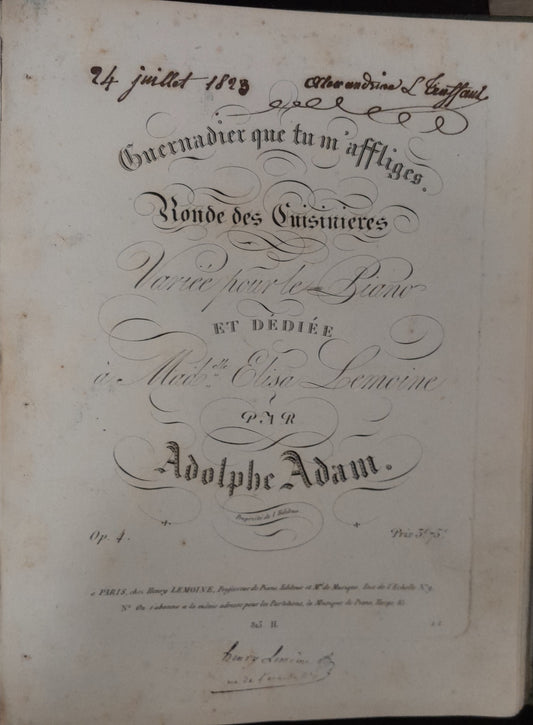 24 juillet 1823 Alexandrine L Truffaut
Guernadier que tu m'affliges.
Ronde des Cuisinieres
Variée pour le Piano
ET DÉDIÉE
à Mad.elle Elisa Lemoine
PAR
Adolphe Adam.
Propriété de l'Editeur
Op. 4. Prix 3f. 75c.
a PARIS, chez Henry LEMOINE, Professeur de Piano, Editeur et Md. de Musique, Rue de l'Echelle No. 9.
Na. On s'abonne a la même adresse pour les Partitions, la Musique de Piano, Harpe, &c.
815 H.
henry Lemoine
rue de l'echelle